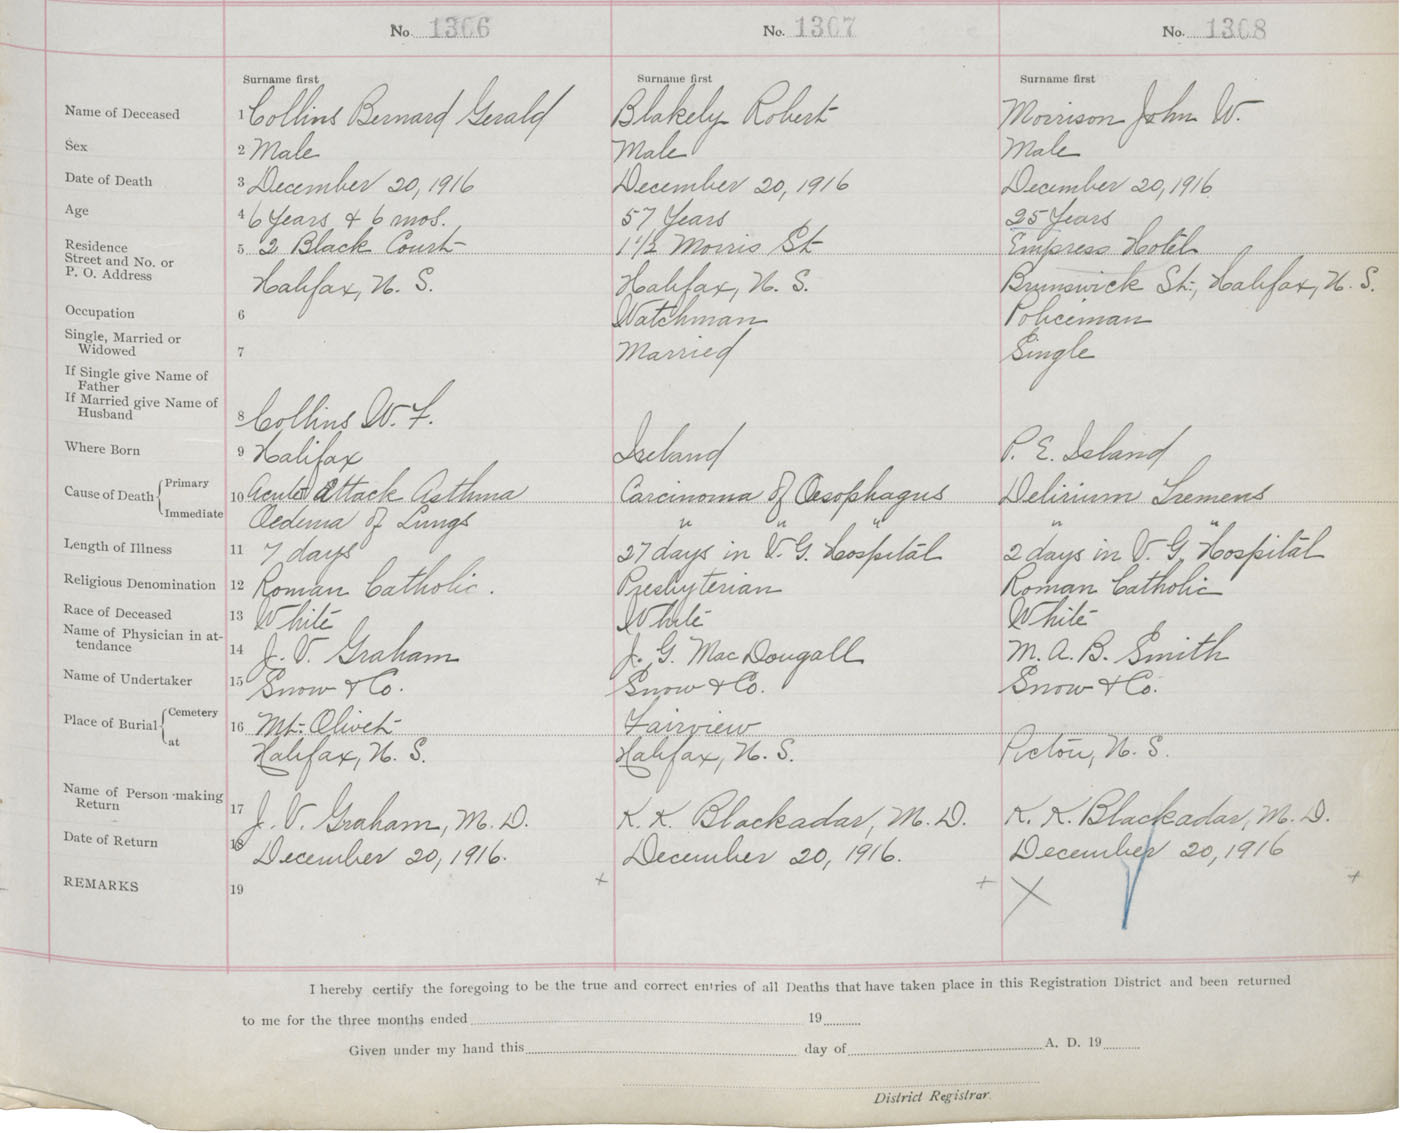 No. 1366 No. 1367 No. 1368
Surname first Surname first Surname first
Name of Deceased 1 Collins Bernard Gerald Blakely Robert Morrison John W.
Sex 2 Male Male Male
Date of Death 3 December 20, 1916 December 20, 1916 December 20, 1916
Age 4 6 Years & 6 mos. 57 Years 25 Years
Residence 5 2 Black Court 1 1/2 Morris St Empress Hotel
Street and No. or
P. O. Address Halifax, N. S. Halifax, N. S. Brunswick St., Halifax, N. S.
Occupation 6 Watchman Policeman
Single, Married or
Widowed 7 Married Single
If Single give Name of
Father
If Married give Name of
Husband 8 Collins W. F.
Where Born 9 Halifax Ireland P. E. Island
Cause of Death { Primary 10 Acute Attack Asthma Carcinoma of Oesophagus Delirium Tremens
Immediate Oedema of Lungs " " " " "
Length of Illness 11 7 days 27 days in V. G. Hospital 2 days in V. G. Hospital
Religious Denomination 12 Roman Catholic. Presbyterian Roman Catholic
Race of Deceased 13 White White White
Name of Physician in at-
tendance 14 J. V. Graham J. G. MacDougall M. A. B. Smith
Name of Undertaker 15 Snow & Co. Snow & Co. Snow & Co.
Place of Burial { Cemetery 16 Mt. Olivet Fairview
at Halifax, N. S. Halifax, N. S. Pictou, N. S.
Name of Person making
Return 17 J. V. Graham, M. D. K. K. Blackadar, M. D. K. K. Blackadar, M. D.
Date of Return 18 December 20, 1916. December 20, 1916. December 20, 1916
REMARKS 19 + + X +
I hereby certify the foregoing to be the true and correct entries of all Deaths that have taken place in this Registration District and been returned
to me for the three months ended 19
Given under my hand this day of A. D. 19
District Registrar.